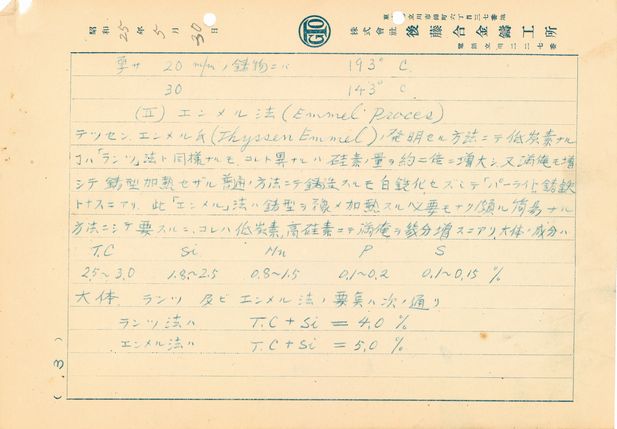 昭和25年5月30日
GTO
東京都立川市錦町六丁目三七番地
株式會社 後藤合金鑄工所
電話立川二二七番
厚サ 20 m/m ノ鋳物ニハ 193° C.
30 143° C.
(II) エンメル法 (Emmel Proces)
テッセン、エンメル氏 (Thyssen Emmel) ノ発明セル方法ニテ低炭素ナル
ハ「ランツ」法ト同様ナルモ コレト異ナルハ 硅素ノ量ヲ約二倍ニ増大シ 又満俺モ増
シテ鋳型加熱セザル普通ノ方法ニテ鋳造スルモ白銑化セズシテ「パーライト」鋳鉄
トナスニアリ、此「エンメル」法ハ鋳型ヲ豫メ加熱スル必要モナク頗ル簡易ナル
方法ニシテ要スルニ、コレハ低炭素、高硅素ニテ満俺ヲ幾分増スニアリ大体ノ成分ハ
T.C Si Mn P S
2.5〜3.0 1.8〜2.5 0.8〜1.5 0.1〜0.2 0.1〜0.15 %
大体 ランツ 及ビ エンメル法ノ要点ハ次ノ通リ
ランツ法ハ T.C + Si = 4.0 %
エンメル法ハ T.C + Si = 5.0 %
(.3)